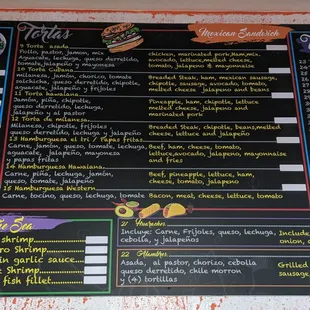 Tortas
Mexican Sandwich
9 Torta asada
Pollo, pastor, jamon, mix
Aguacate, lechuga, queso derretido,
tomate, jalapeño y mayonesa
chicken, marinated pork, Ham, mix
avocado, lettuce, melted cheese,
tomato, jalapeno & mayonnaise
10 Torta Cubana
milanesa, jamón, chorizo, tomate
salchicha, queso derretido, lechuga,
mayonesa y jalapeños
Breaded Steak, ham, mexican sausage,
chipotle, sausage, avocado, tomato,
melted cheese, jalapeno and beans
11 Torta hawaiana
Jamón, piña, chipotle,
queso derretido, lechuga,
jalapeño y al pastor
Pineapple, ham, chipotle, lettuce
melted cheese, jalapeno and
marinated pork
12 Torta de milanesa
Milanesa, chipotle, frijoles,
queso derretido, lechuga y jalapeño
Breaded Steak, chipotle, beans, melted
cheese, lettuce and jalapeño
13 Hamburguesa el tri / Papas fritas
Carne, jamón, queso, tomate, lechuga,
aguacate, jalapeño, mayonesa
y papas fritas
Beef, ham, cheese, tomato,
lettuce, avocado, jalapeno, mayonnaise
and fries
Hamburguesa Hawaiana
Carne, piña, lechuga, jamón,
queso, tomate, jalapeño
Beef, pineapple, lettuce, ham,
cheese, tomato, jalapeno
15 Hamburguesa Western
Carne, tocino, queso, lechuga, tomate
Bacon, meat, cheese, lettuce, tomato
Sea
shrimp
Shrimp
in garlic sauce
Shrimp
fish fillet
21 Huaraches
Incluye: Carne, Frijoles, queso, lechuga,
cebolla, y jalapeños
Include
onion,
22 Alambres
Asada, al pastor, chorizo, cebolla
queso derretido, chile morron
y (4) tortillas
Grilled
sausage